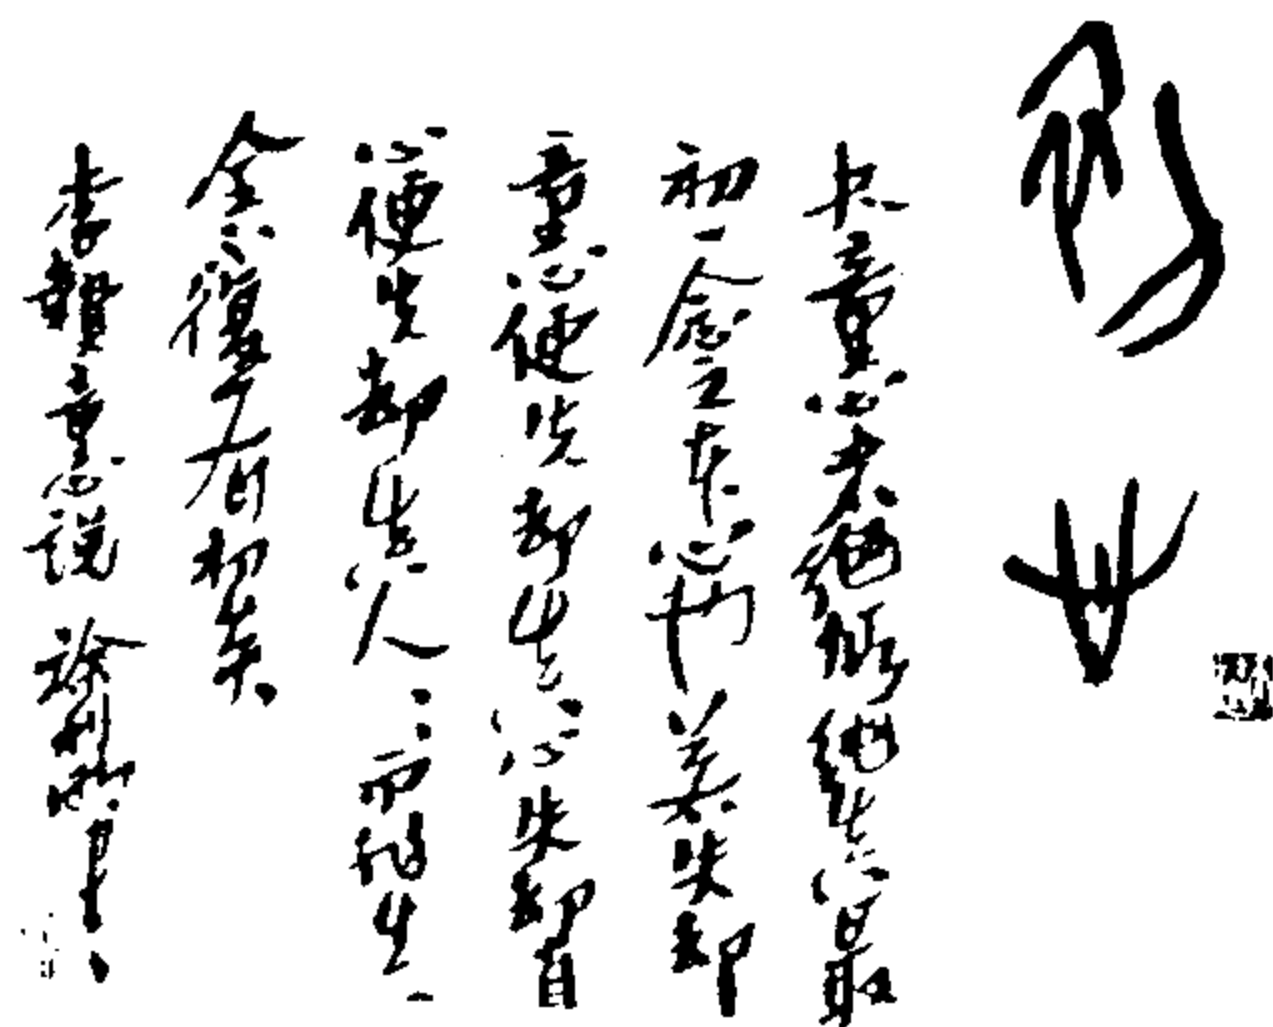 初心
夫童心者絕假純真最
初一念之本心也若失却
童心便失却真心失却真
心便失却真人〻而非真
全不復有初矣
李贄童心說 徐利明書